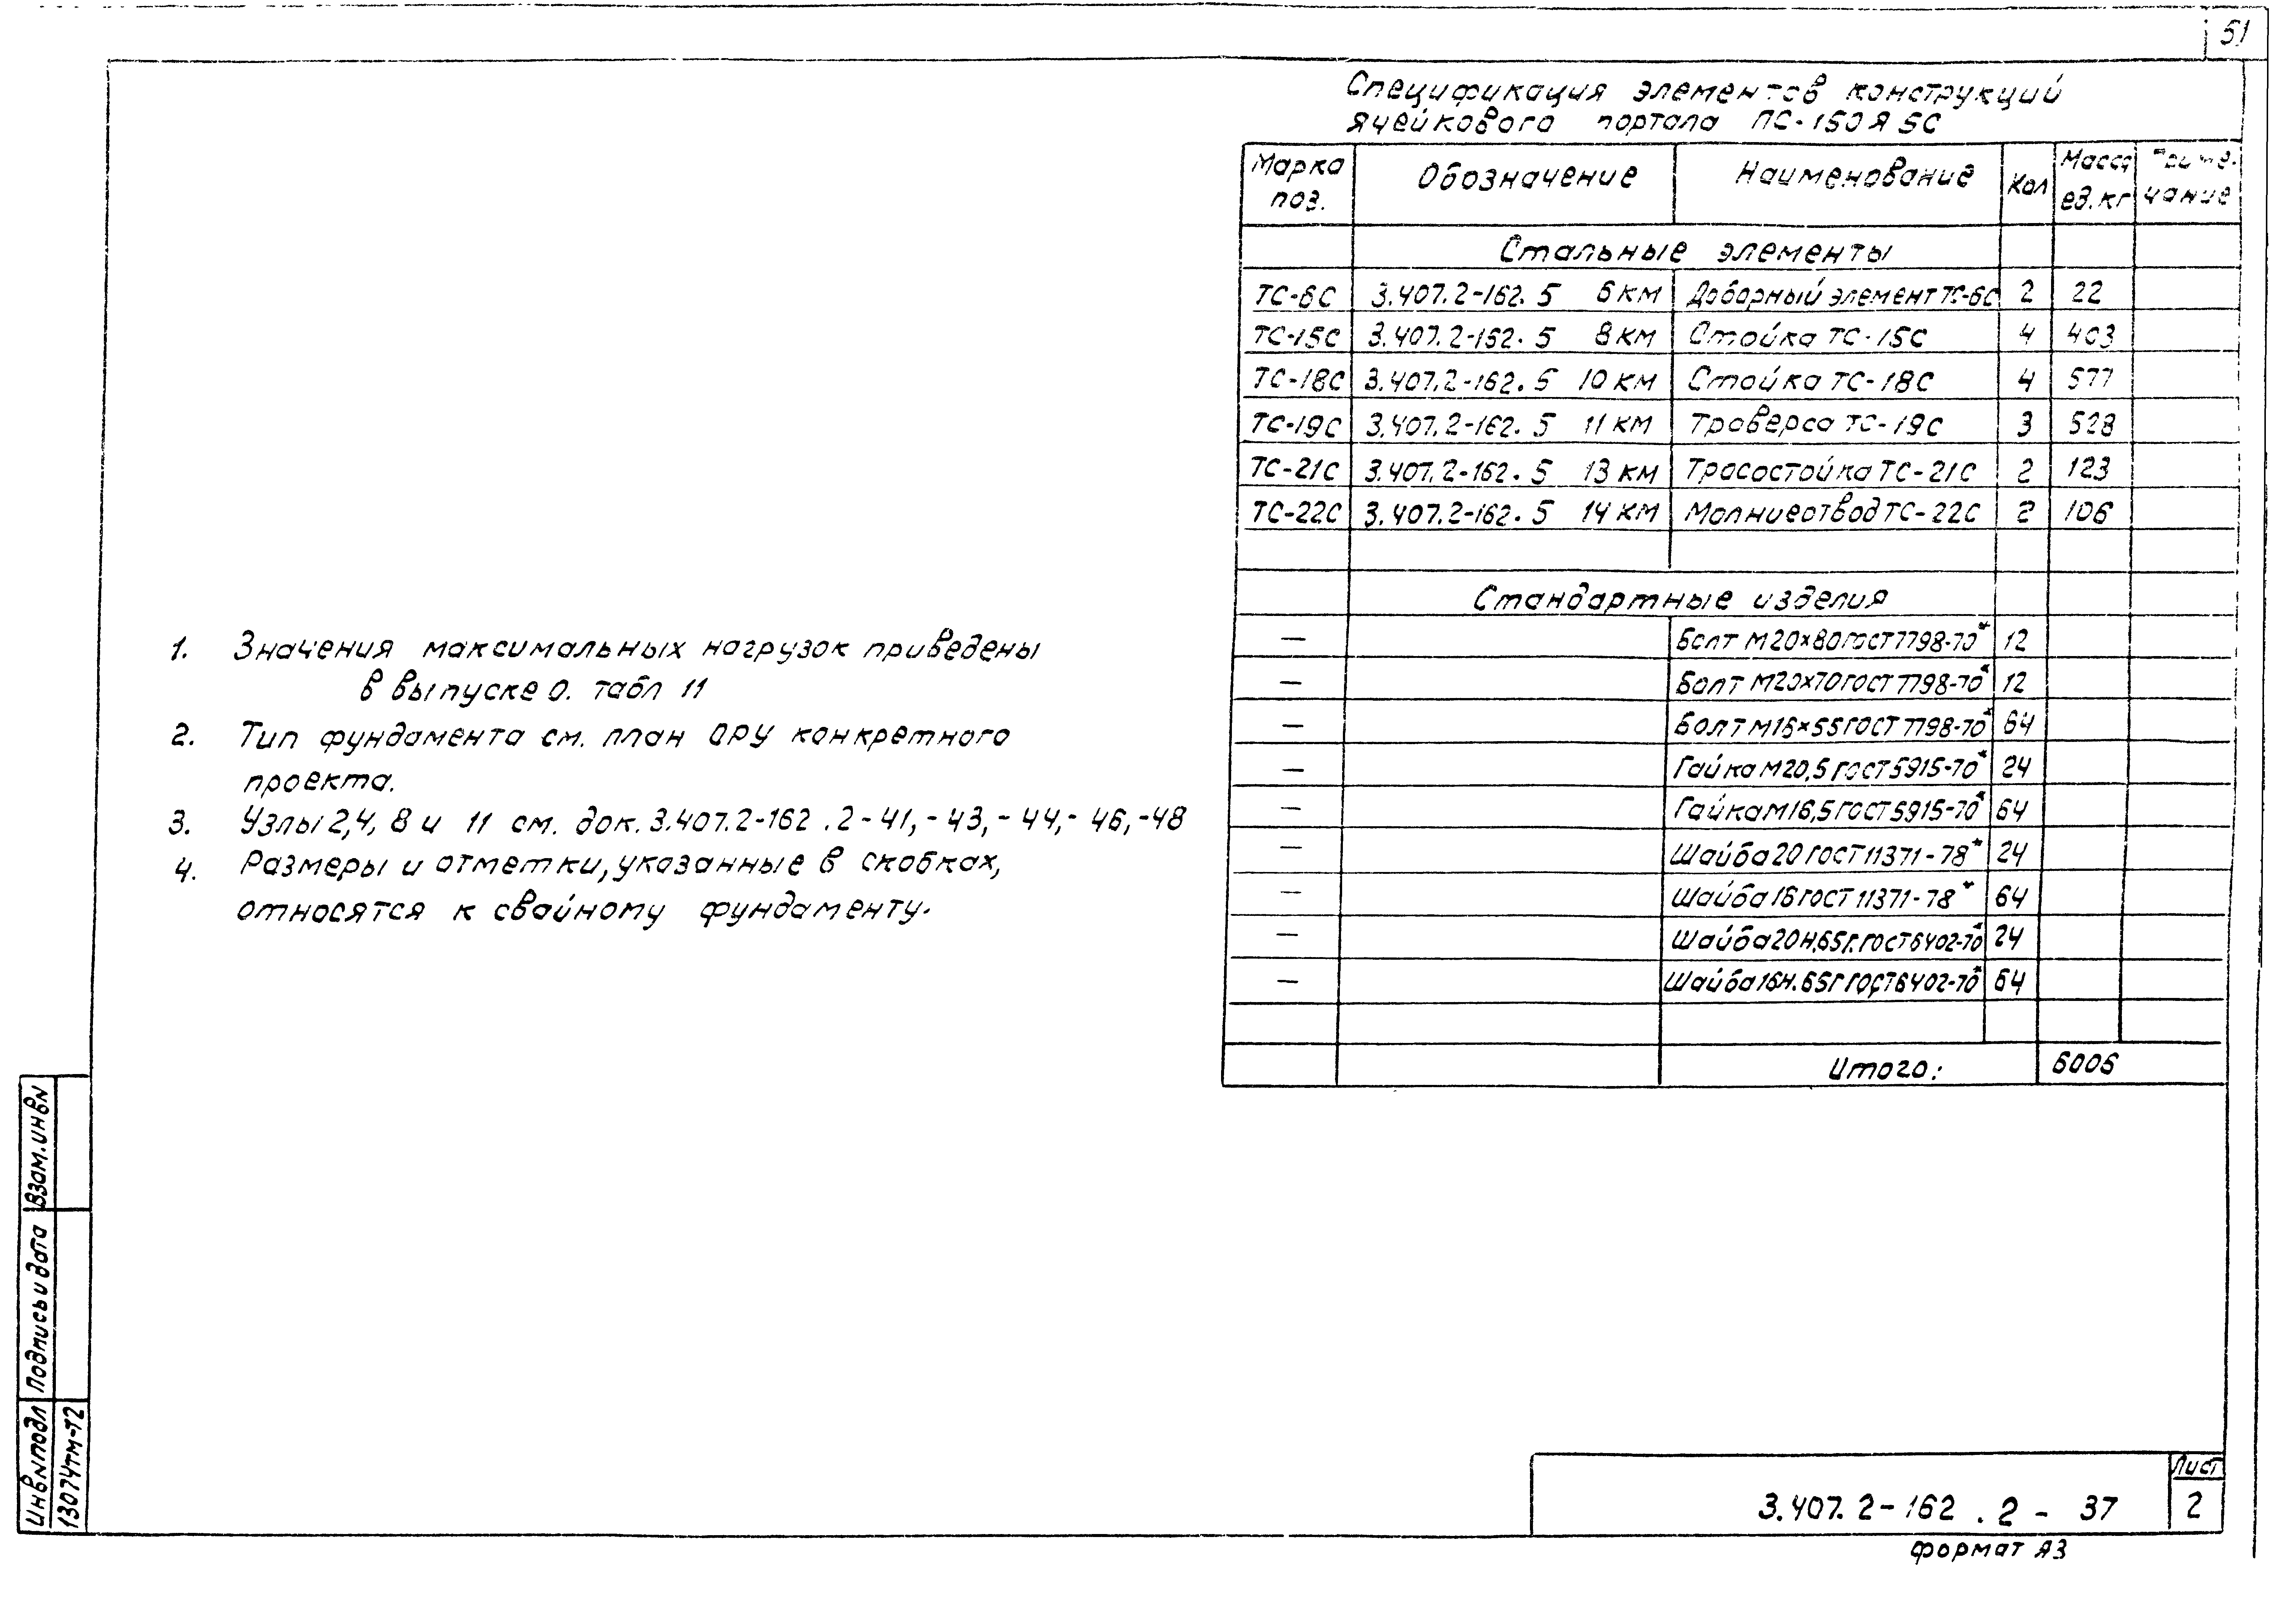 51
Спецификация элементов конструкций
ячейкового портала ПС-150Я5С
Марка поз. Обозначение Наименование Кол Масса ед. кг Примечание
Стальные элементы
ТС-6С 3.407.2-162.5 6КМ Доборный элемент ТС-6С 2 22
ТС-15С 3.407.2-162.5 8КМ Стойка ТС-15С 4 403
ТС-18С 3.407.2-162.5 10КМ Стойка ТС-18С 4 577
ТС-19С 3.407.2-162.5 11КМ Траверса ТС-19С 3 528
ТС-21С 3.407.2-162.5 13КМ Тросостойка ТС-21С 2 123
ТС-22С 3.407.2-162.5 14КМ Молниеотвод ТС-22С 2 106
Стандартные изделия
— Болт М20×80 ГОСТ 7798-70* 12
— Болт М20×70 ГОСТ 7798-70* 12
— Болт М16×55 ГОСТ 7798-70* 64
— Гайка М20,5 ГОСТ 5915-70* 24
— Гайка М16,5 ГОСТ 5915-70* 64
— Шайба 20 ГОСТ 11371-78* 24
— Шайба 16 ГОСТ 11371-78* 64
— Шайба 20Н.65Г. ГОСТ 6402-70* 24
— Шайба 16Н.65Г ГОСТ 6402-70* 64
Итого: 6006
1. Значения максимальных нагрузок приведены
в выпуске 0. табл 11
2. Тип фундамента см. план ОРУ конкретного
проекта.
3. Узлы 2,4, 8 и 11 см. док. 3.407.2-162.2-41,-43,-44,-46,-48
4. Размеры и отметки, указанные в скобках,
относятся к свайному фундаменту.
Взам. инв N
Подпись и дата
Инв N подл
13074тм-т2
3.407.2-162.2-37
Лист
2
формат А3